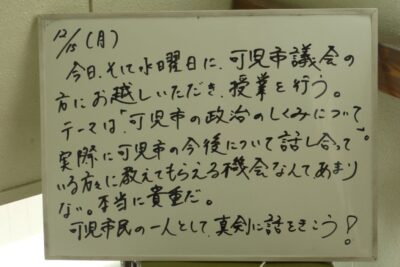 12/15(月)
今日、そして水曜日に、可児市議会の
方にお越しいただき、授業を行う。
テーマは「可児市の政治のしくみについて」。
実際に可児市の今後について話し合って
いる方々に教えてもらえる機会なんてあまり
ない。本当に貴重だ。
可児市民の一人として、真剣に話をきこう!